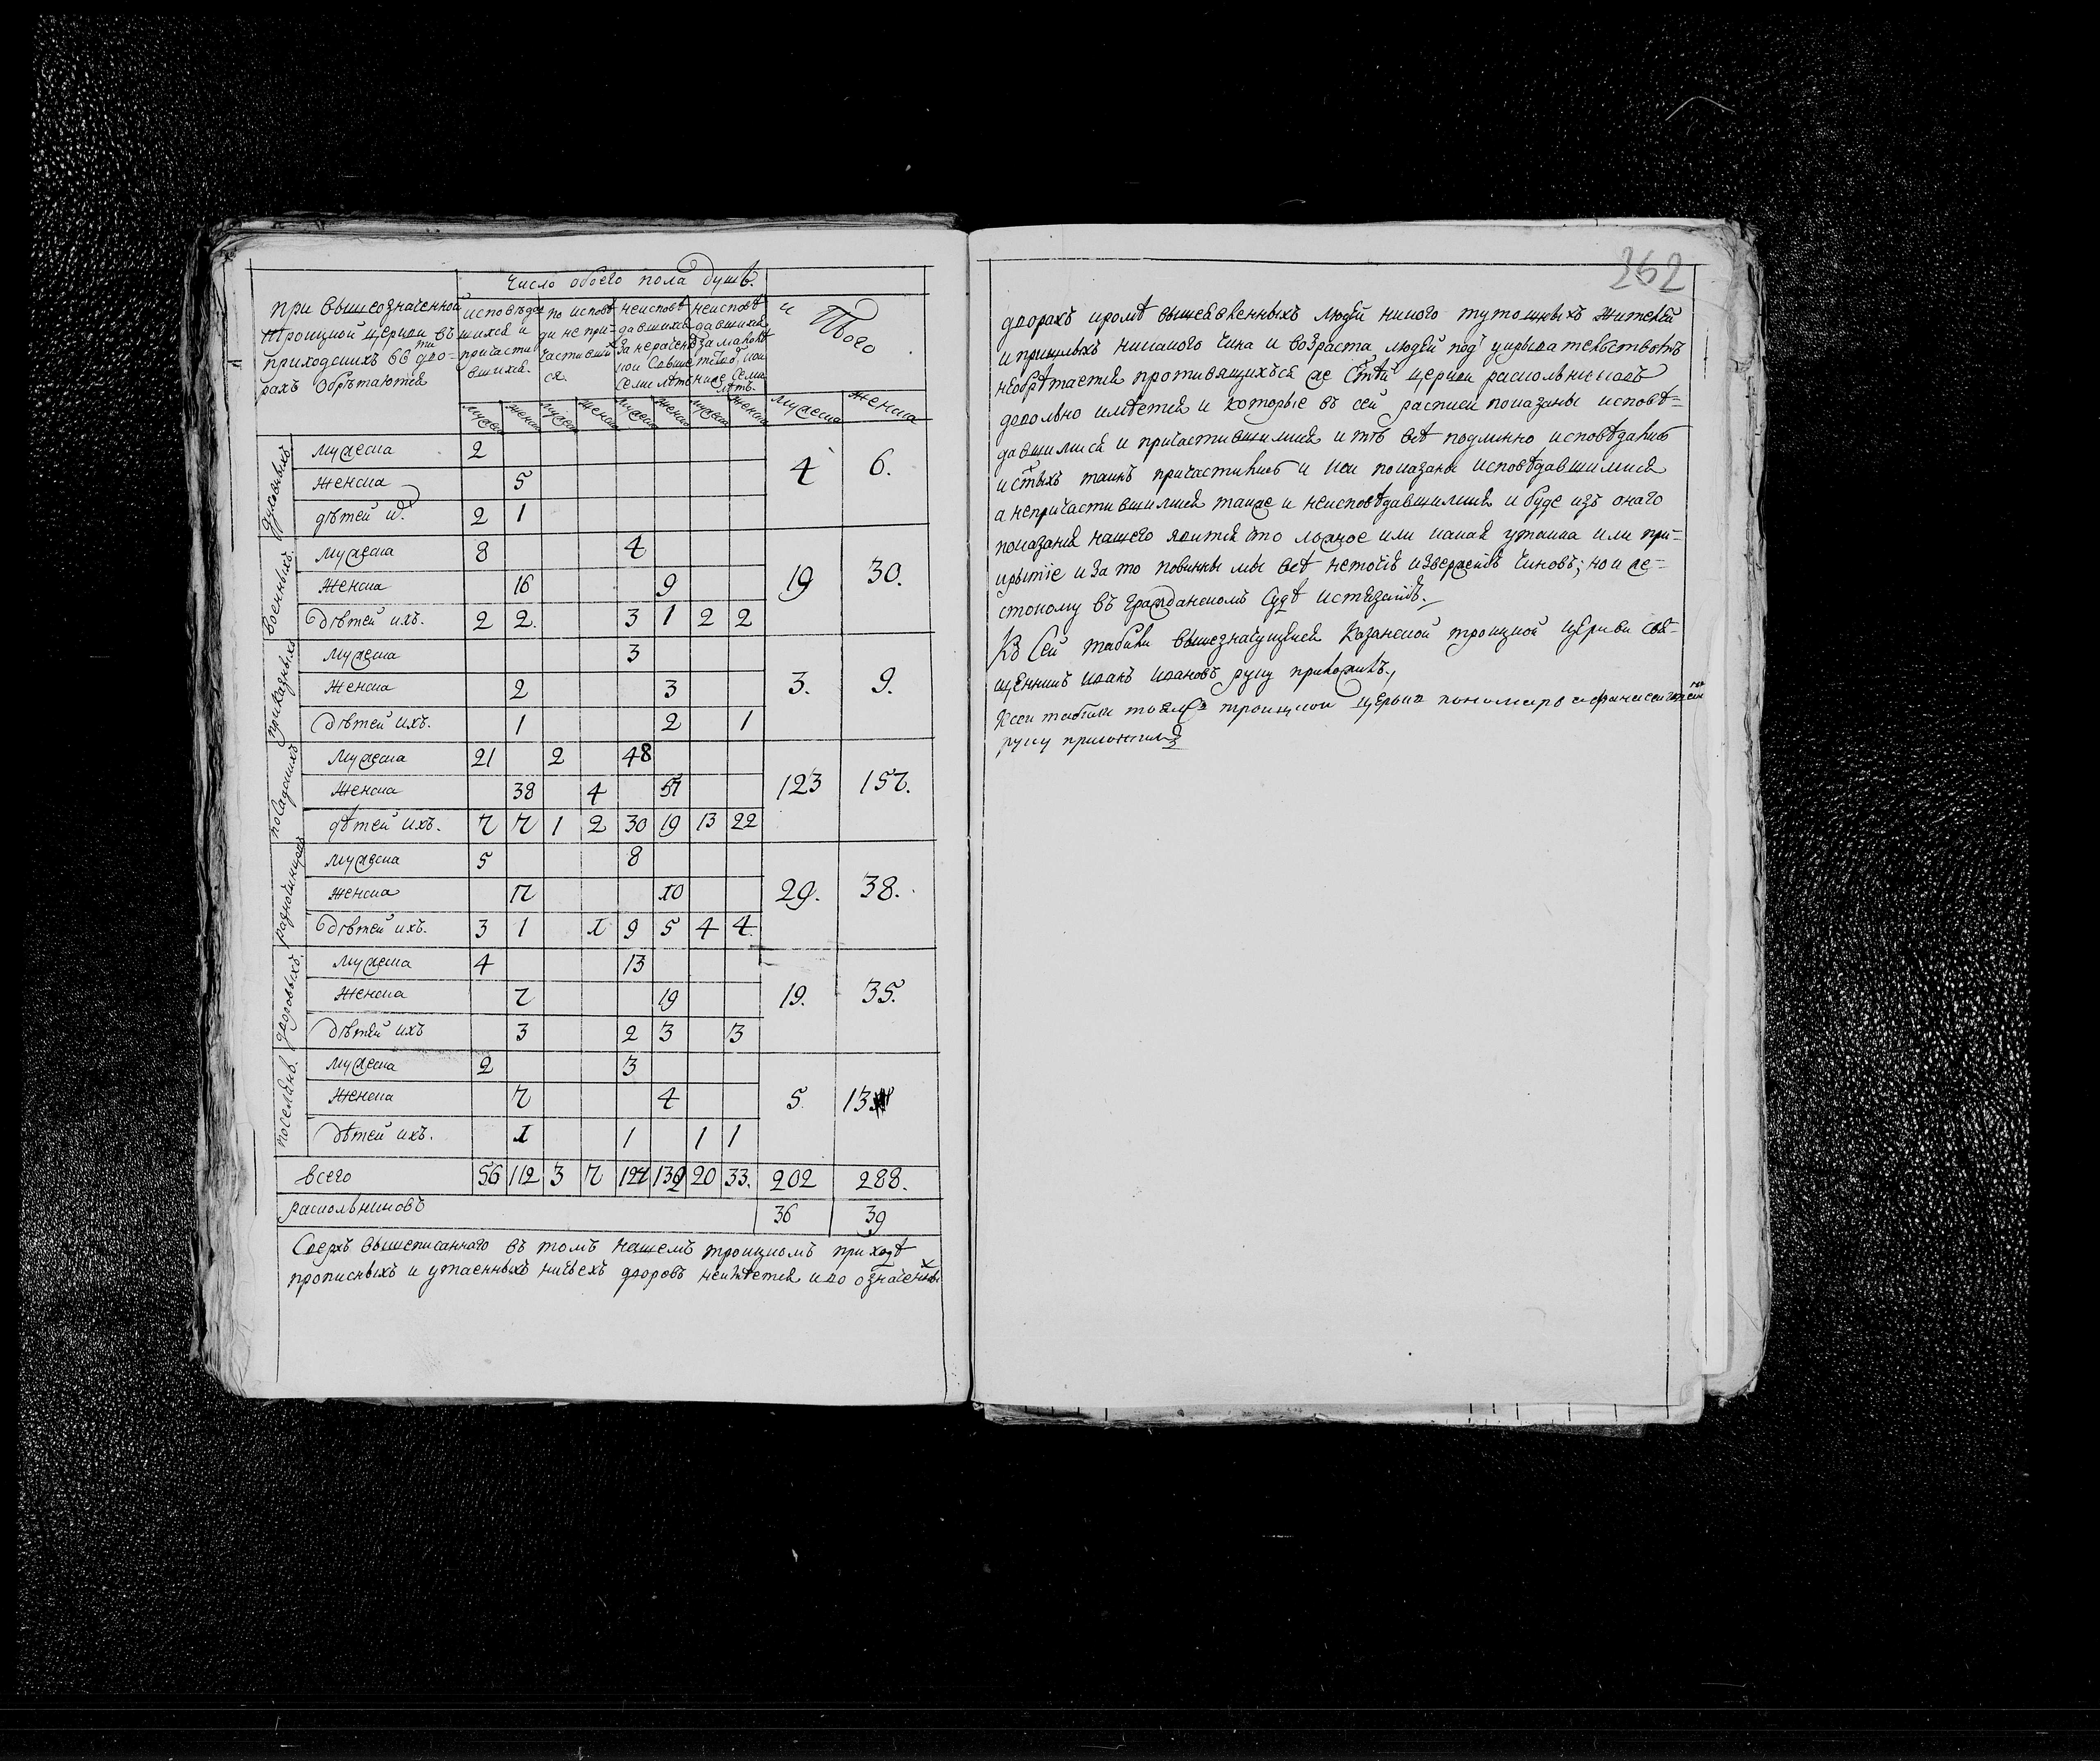 Число обоего пола душъ.
при вышеозначенной
троицкой церкви въ
приходскихъ въ дво-
рахъ обрѣтаются
исповѣдав
шихся и
причасти
вшихся.
по исповѣ
ди не при-
частивши
ся
неисповѣ
давшихся
за нераченіе
неисповѣ
давшихся
за малолѣт
Итого
мужеска женска мужеска женска мужеска женска мужеска женска мужеска женска
духовныхъ
мужеска 2
женска 5 4 6.
дѣтей их. 2 1
военныхъ.
мужеска 8 4
женска 16 9 19 30.
дѣтей ихъ. 2 2. 3 1 2 2
приказныхъ
мужеска 3
женска 2 3 3. 9.
дѣтей ихъ. 1 2 1
посадскихъ
мужеска 21 2 48
женска 38 4 57 123 157.
дѣтей ихъ. 7 7 1 2 30 19 13 22
разночинцовъ
мужеска 5 8
женска 17 10 29. 38.
дѣтей ихъ. 3 1 1 9 5 4 4.
дворовыхъ.
мужеска 4 13
женска 7 19 19. 35.
дѣтей ихъ 3 2 3 3
поселянъ.
мужеска 2 3
женска 7 4 5. 13
дѣтей ихъ. 1 1 1 1
всего 56 112 3 7 20 33. 202 288.
раскольниковъ 36 39
Сверхъ вышеписанного въ томъ нашемъ троицкомъ приходѣ
прописныхъ и утаенныхъ ничьехъ дворовъ неимѣется и во означенныхъ
262
дворахъ кромѣ вышеявленныхъ людей никого тутошныхъ жителей
и пришлыхъ никакого чина и возраста людей под укрывательствомъ
необрѣтается противящихся же стѣй церкви раскольниковъ
довольно имѣется и которые въ сей росписи показаны исповѣ=
давшимися и причастившимися и тѣ всѣ подлинно исповѣдались
и стыхъ таинъ причастились и кои показаны исповѣдавшимися
а непричастившимися такъже и неисповѣдавшимися и буде изъ онаго
показанія нашего явится что ложное или какая утайка или при=
крытіе и за то повинны мы всѣ неточію изверженію чиновъ; но и же=
стокому въ гражданскомъ судѣ истязанію.
Къ сей табели вышезначущейся казанской троицкой церкви свя=
щенникъ иванъ ивановъ руку приложилъ.
Ксеи табели тояже троицкои церкви пономарь афанасеи
руку приложилъ